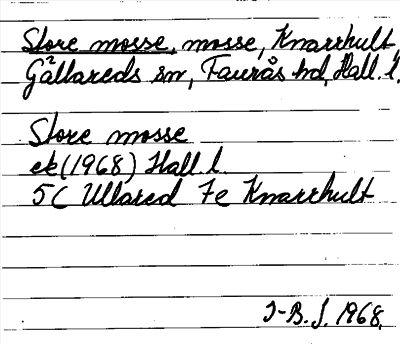 Store mosse, mosse, Knarrhult,
Gällareds sn, Faurås hd, Hall. l.
Store mosse
ek (1968) Hall. l.
5C Ullared 7e Knarrhult
J-B. J. 1968.